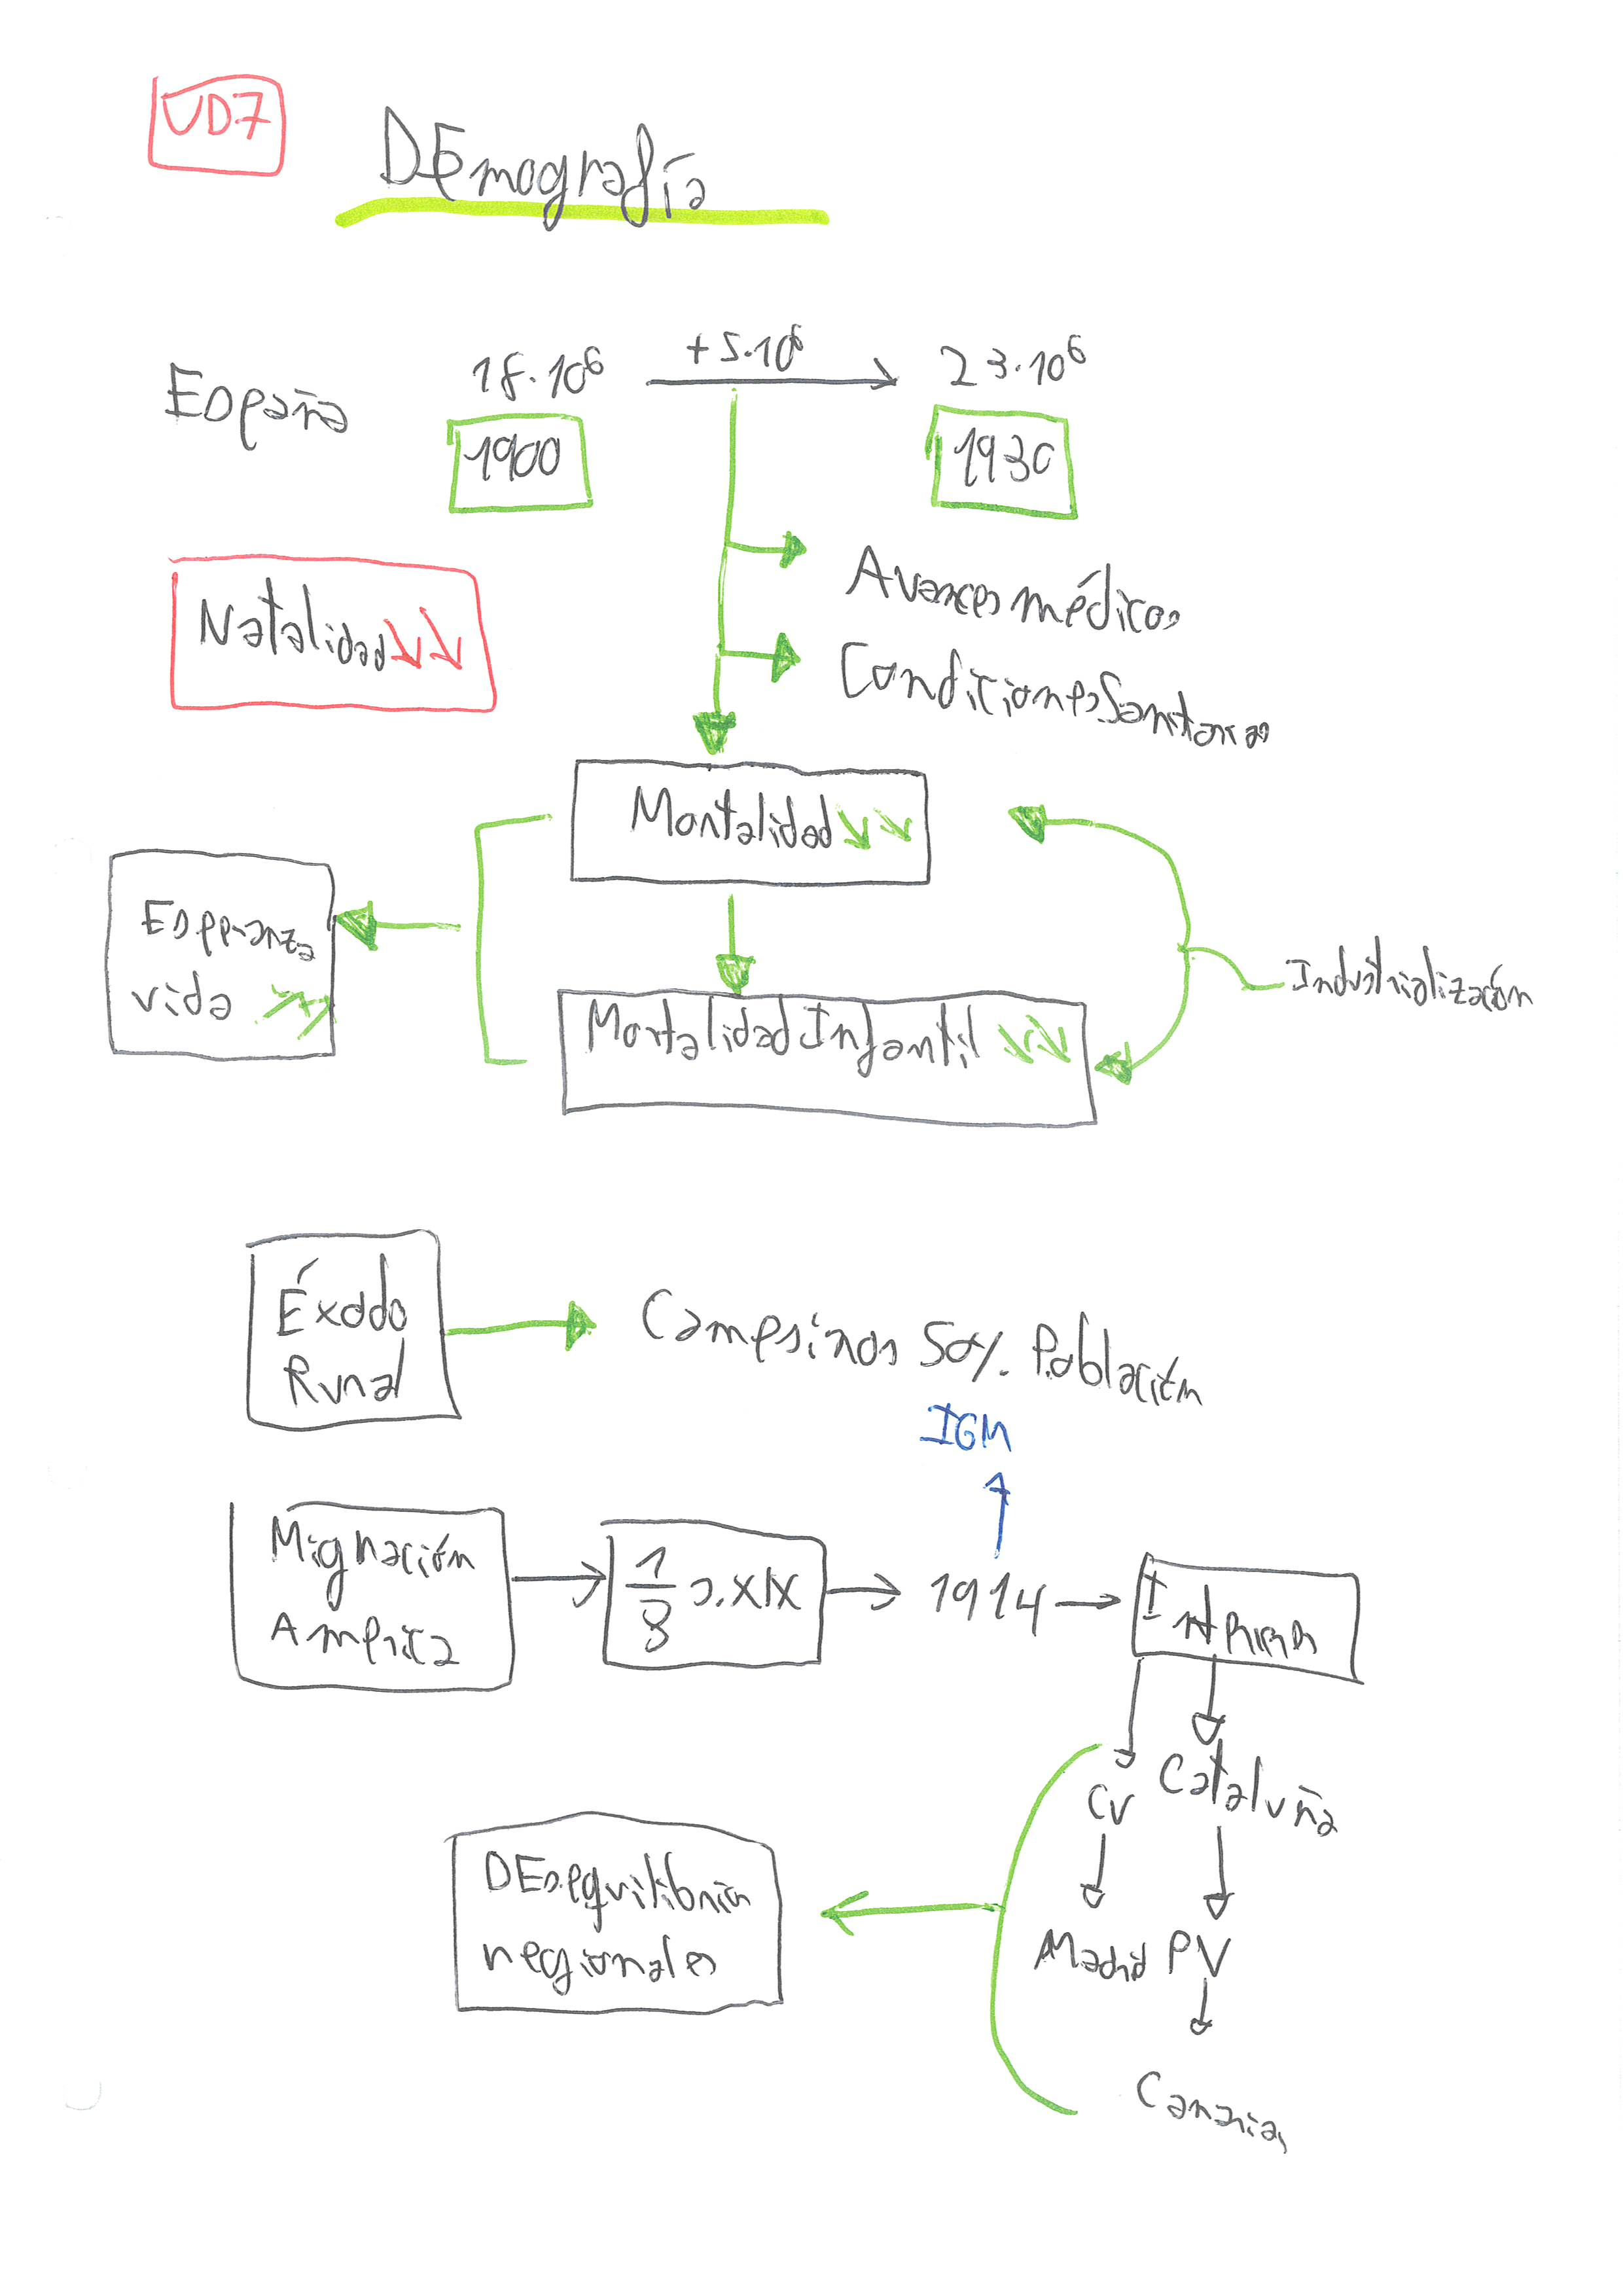 UD7
DEmografía
España
18·10⁶
+5·10⁶
23·10⁶
1900
1930
Natalidad
Avances médicos
Condiciones Sanitarias
Mortalidad
Esperanza
vida
Mortalidad Infantil
Industrialización
Éxodo
Rural
Campesinos 50% Población
IGM
Migración
America
1/3 s.XIX
1914
Interna
CV
Cataluña
Madrid
PV
Canarias
DEsequilibrios
regionales